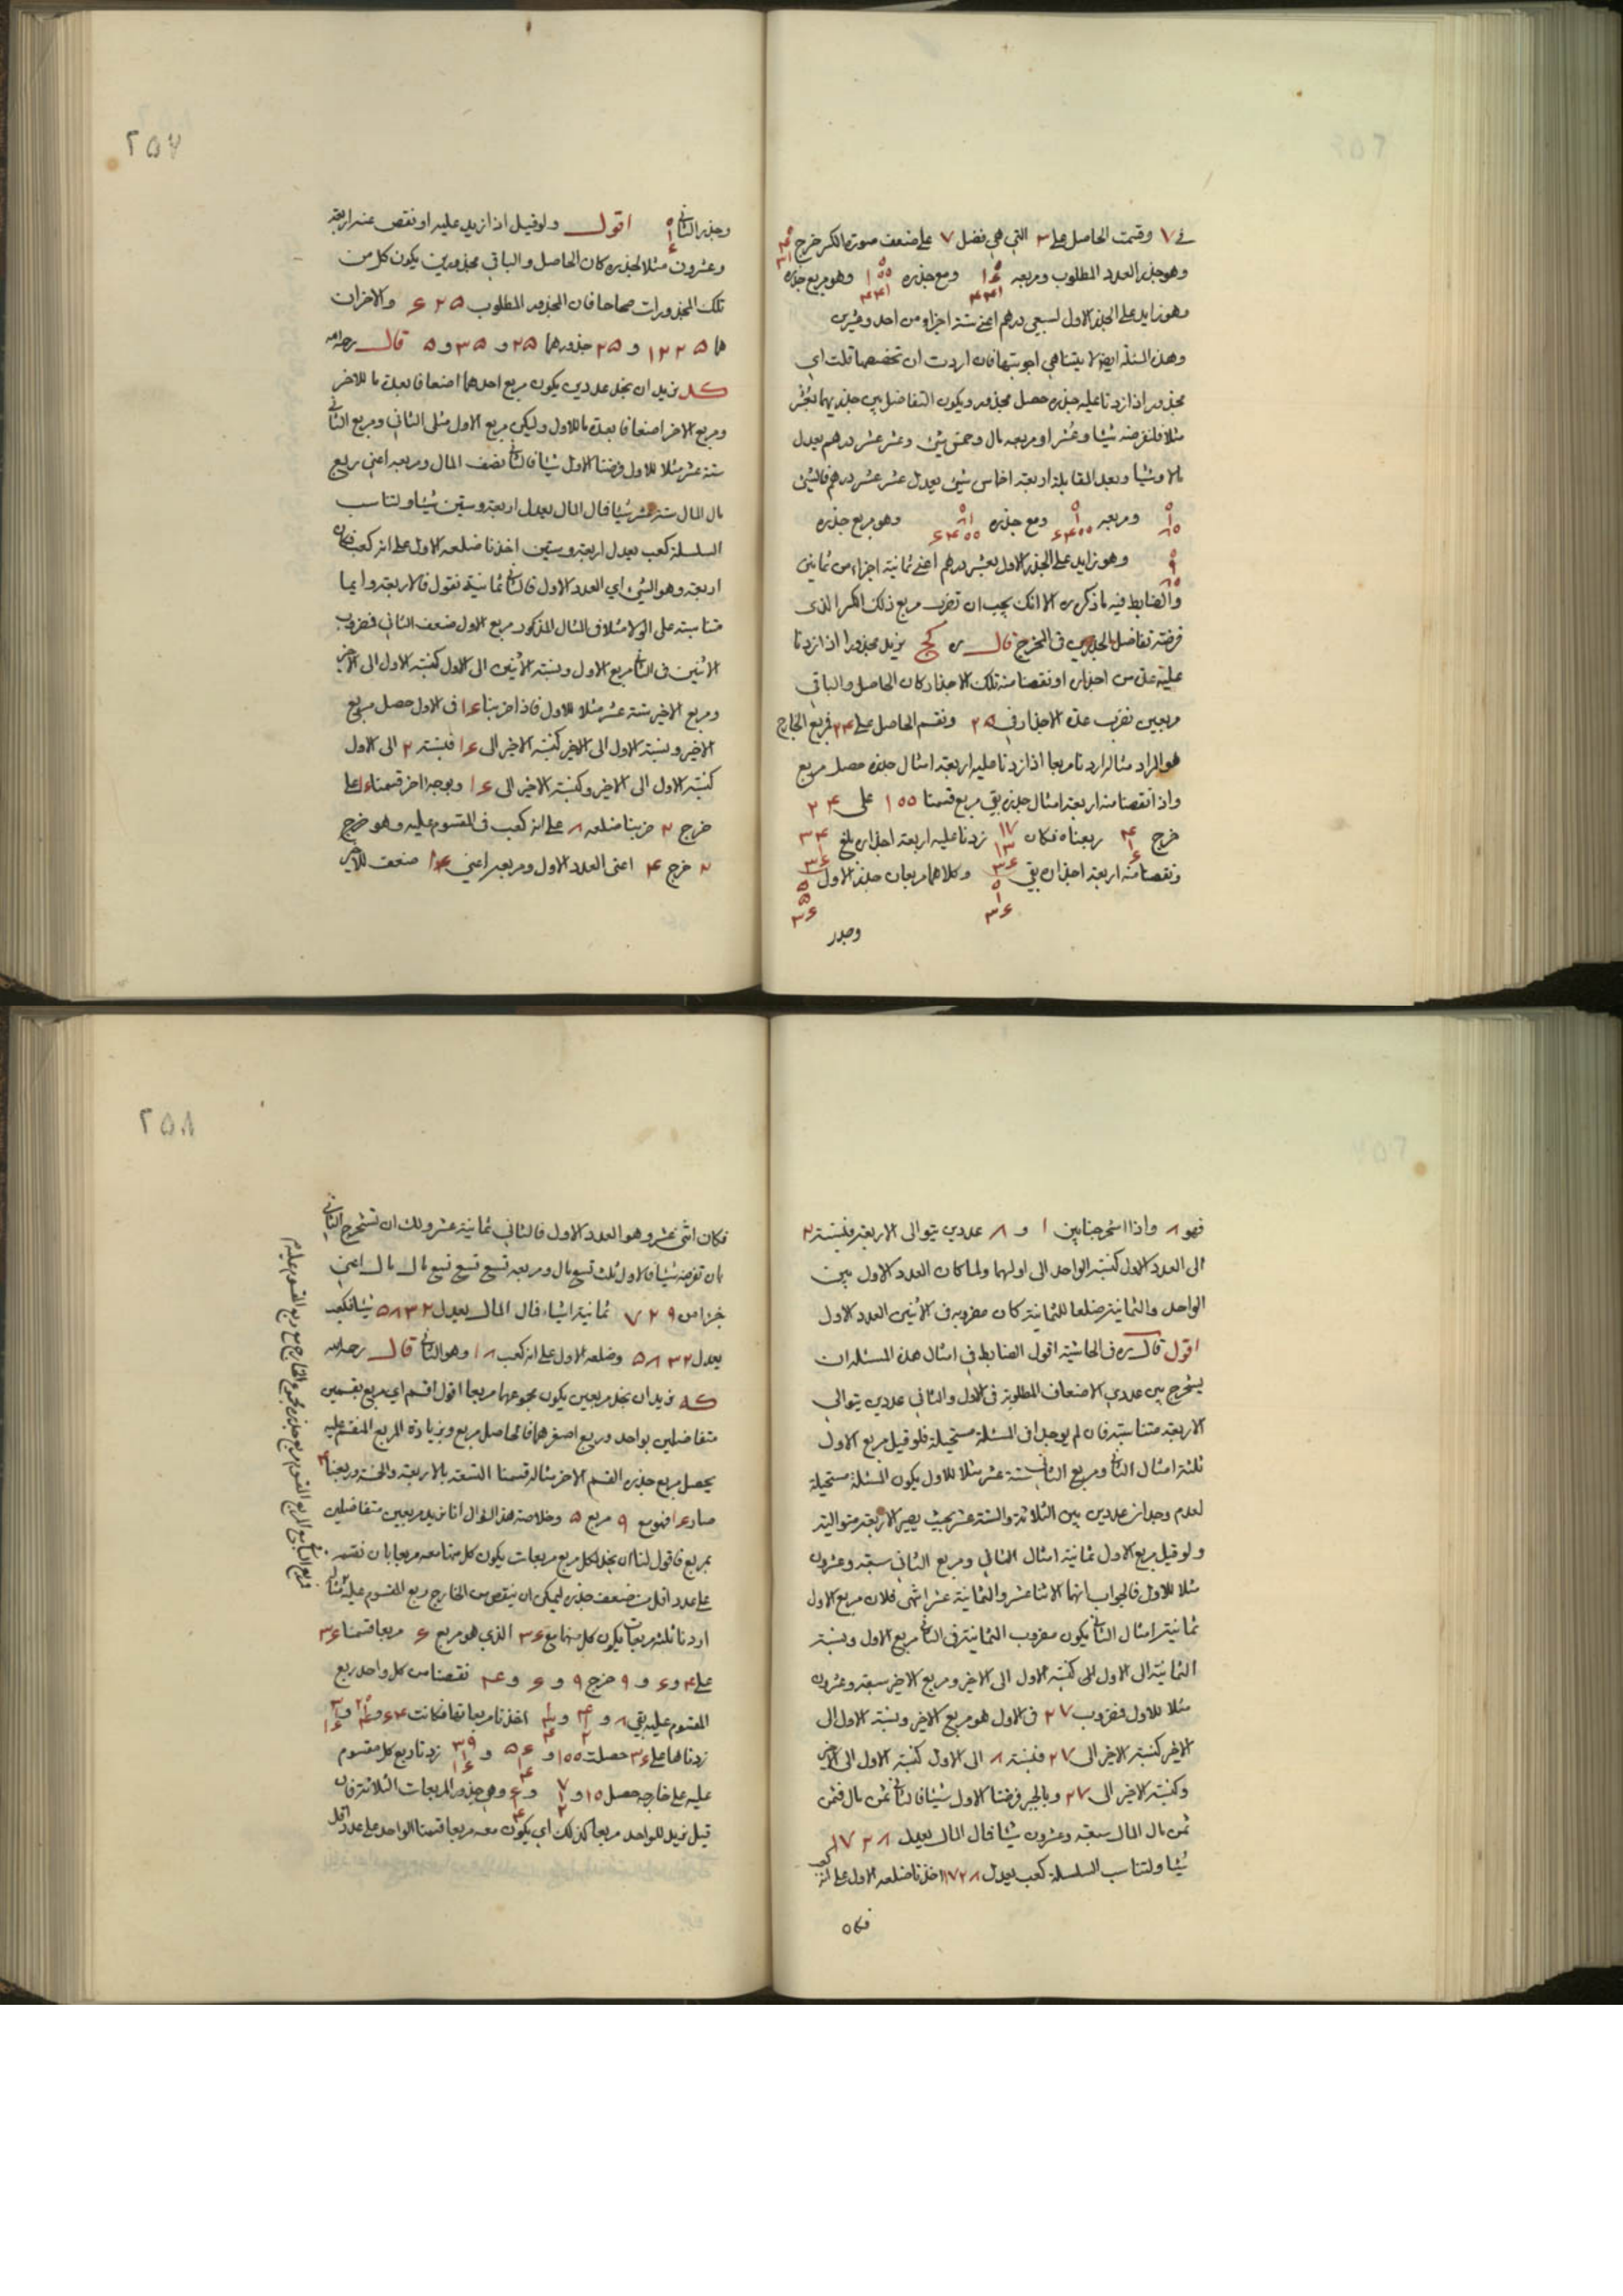 في ٧ وقسمت الحاصل على ٣ التي هي فضل ٧ على ضعف صورة الكسر خرج
وهو جذر العدد المطلوب ومربعه ومع جذره وهو مربع جذره
وهو زايد على الجذر الاول لسبعي درهم اعني ستة اجزاء من احد وعشرين
وهذه المسئلة ايضا لا يتناهي اجوبتها فان اردت ان تخصصها قلت اي
مجذور اذا زدنا عليه جذره حصل مجذور ويكون التفاضل بين جذريهما بعُشر
مثلا فلنفرضه شيئا وعُشرا ومربعه مال وخمس شئ وعشر عشر درهم يعدل
مالا وشيئا وبعد المقابلة اربعة اخماس شئ يعدل عشر عشر درهم فالشئ
ومربعه ومع جذره وهو مربع جذره
وهو زايد على الجذر الاول بعشر درهم اعني ثمانية اجزاء من ثمانين
والضابط فيه ما ذكره الا انك يجب ان تضرب مربع ذلك الكسر الذي
فرضته تفاضل الجذرين في المخرج قال ره كج نريد مجذورا اذا زدنا
عليه عدة من اجذاره او نقصنا منه تلك الاجذار كان الحاصل والباقي
مربعين نضرب عدة الاجذار في ٢٥ ونقسم الحاصل على ٢٤ فمربع الخارج
هو المراد مثاله اردنا مربعا اذا زدنا عليه اربعة امثال جذره حصل مربع
واذا نقصنا منه اربعة امثال جذره بقي مربع قسمنا ١٠٠ على ٢٤
خرج ربعناه فكان زدنا عليه اربعة اجذاره بلغ
ونقصنا منه اربعة اجذاره بقي وكلاهما مربعان جذر الاول
وجذر
٢٥٧
وجذر الثاني اقول ولو قيل اذا زيد عليه او نقص عنه اربعة
وعشرون مثلا لجذره كان الحاصل والباقي مجذورين يكون كل من
تلك المجذورات صحاحا فان المجذور المطلوب ٦٢٥ والاخران
هما ١٢٢٥ و ٢٥ جذورهما ٢٥ و ٣٥ و ٥ قال رحمه الله
كد نريد ان نجد عددين يكون مربع احدهما اضعافا بعدة ما للاخر
ومربع الاخر اضعافا بعدة ما للاول وليكن مربع الاول مثلى الثاني ومربع الثاني
ستة عشر مثلا للاول فرضنا الاول شيئا فالثاني نصف المال ومربعه اعني ربع
مال المال ستة عشر شيئا فمال المال يعدل اربعة وستين شيئا ولتناسب
السلسلة كعب يعدل اربعة وستين اخذنا ضلعه الاول على انه كعب فكان
اربعة وهو الشئ اي العدد الاول فالثاني ثمانية نقول فالاربعة دايما
متناسبة على الولا مثلا في المثال المذكور مربع الاول ضعف الثاني فضرب
الاثنين في الثاني مربع الاول ونسبة الاثنين الى الاول كنسبة الاول الى الاخير
ومربع الاخير ستة عشر مثلا للاول فاذا ضربنا ١٦ في الاول حصل مربع
الاخير ونسبة الاول الى الاخير كنسبة الاخير الى ١٦ فنسبة ٢ الى الاول
كنسبة الاول الى الاخير وكنسبة الاخير الى ١٦ وبوجه اخر قسمنا ١٦ على
خرج ٢ ضربنا ضلعه ٨ على انه كعب في المقسوم عليه وهو خرج
٢ خرج ٤ اعني العدد الاول ومربعه اعني ١٦ ضعف للاخير
فهو ٨ واذا استخرجنا بين ١ و ٨ عددين يتوالى الاربعة فنسبة ٢
الى العدد الاول كنسبة الواحد الى اولهما ولما كان العدد الاول بين
الواحد والثمانية ضلعا للثمانية كان مضروبه في الاثنين العدد الاول
اقول قال ره في الحاشية اقول الضابط في امثال هذه المسئلة ان
يستخرج بين عددي الاضعاف المطلوبة في الاول والثاني عددين يتوالى
الاربعة متناسبة فان لم يوجدا فالمسئلة مستحيلة فلو قيل مربع الاول
ثلثة امثال الثاني ومربع الثاني ستة عشر مثلا للاول يكون المسئلة مستحيلة
لعدم وجدان عددين بين الثلاثة والستة عشر بحيث يصير الاربعة متوالية
ولو قيل مربع الاول ثمانية امثال الثاني ومربع الثاني سبعة وعشرون
مثلا للاول فالجواب انهما الاثنا عشر والثمانية عشر انتهى فلان مربع الاول
ثمانية امثال الثاني يكون مضروب الثمانية في الثاني مربع الاول ونسبة
الثمانية الى الاول كنسبة الاول الى الاخير ومربع الاخير سبعة وعشرون
مثلا للاول فمضروب ٢٧ في الاول هو مربع الاخير ونسبة الاول الى
الاخير كنسبة الاخير الى ٢٧ فنسبة ٨ الى الاول كنسبة الاول الى الاخير
وكنسبة الاخير الى ٢٧ وبالجبر فرضنا الاول شيئا فالثاني ثمن مال فثمن
ثمن مال المال سبعة وعشرون شيئا فمال المال يعدل ١٧٢٨
شيئا ولتناسب السلسلة كعب يعدل ١٧٢٨ اخذنا ضلعه الاول على انه كعب
فكان
٢٥٨
فكان اثنى عشر وهو العدد الاول فالثاني ثمانية عشر ولك ان تستخرج الثاني
بان تفرضه شيئا فالاول ثلث تسع مال ومربعه تسع تسع تسع مال مال اعني
جزء من ٧٢٩ ثمانية اشياء فمال المال يعدل ٥٨٣٢ شيئا فكعب
يعدل ٥٨٣٢ وضلعه الاول على انه كعب ١٨ وهو الثاني قال رحمه الله
كه نريد ان نجد مربعين يكون مجموعهما مربعا اقول اقسم اي مربع بقسمين
متفاضلين بواحد وربع اصغرهما فالحاصل مربع وبزيادة المربع المنقسم عليه
يحصل مربع جذره القسم الاخر مثاله قسمنا التسعة بالاربعة والخمسة وربعنا ٤
صار ١٦ فهو مع ٩ مربع ٥ وخلاصة هذا السؤال انا نريد مربعين متفاضلين
بمربع فاقول لنا ان نجد لكل مربع مربعات يكون كل منها معه مربعا بان نقسمه
على عدد اقل من ضعف جذره ليمكن ان ينقص من الخارج ربع المقسوم عليه مثاله
اردنا ثلثة مربعات يكون كل منها مع ٣٦ الذي هو مربع ٦ مربعا قسمنا ٣٦
على ٤ و ٦ و ٩ خرج ٩ و ٦ و ٤ نقصنا من كل واحد ربع
المقسوم عليه بقي ٨ و و اخذنا مربعاتها فكانت ٦٤ و و
زدناها على ٣٦ حصلت ١٠٠ و و زدنا ربع كل مقسوم
عليه على خارجه حصل ١٠ و و وهي جذور المربعات الثلاثة فان
قيل نريد للواحد مربعا كذلك اي يكون معه مربعا قسمنا الواحد على عدد اقل